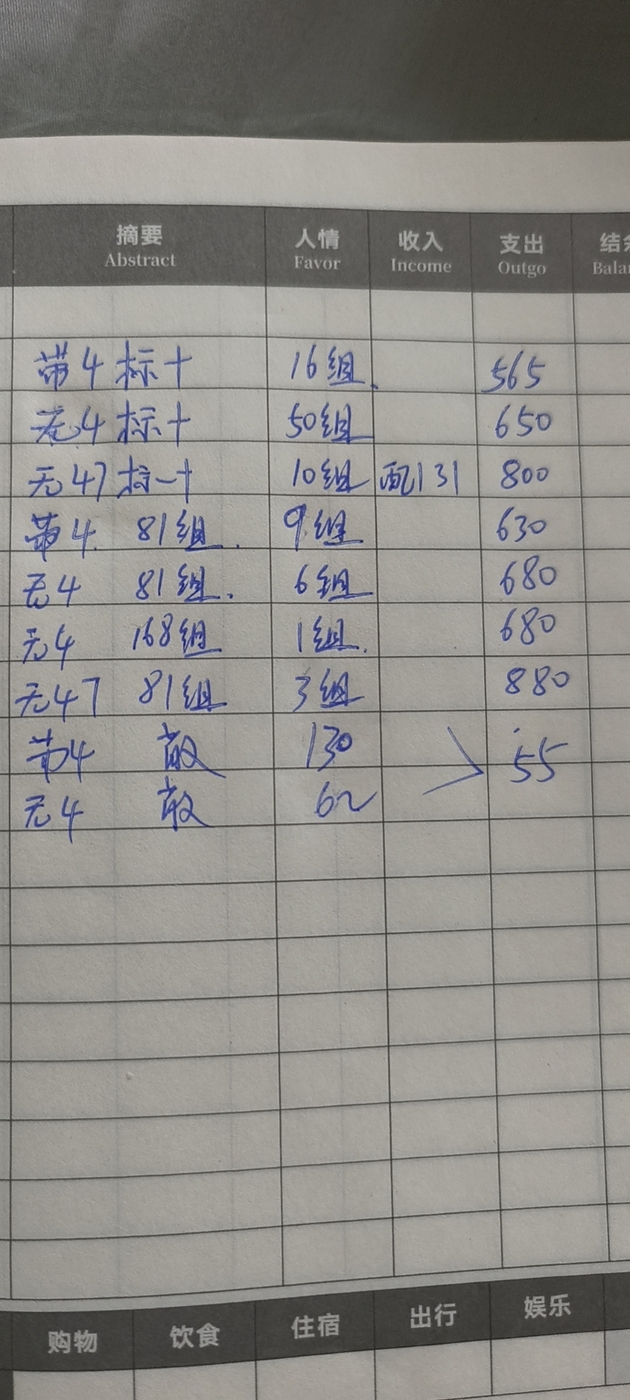 摘要 人情 收入 支出 结
Abstract Favor Income Outgo Balan
带4标十 16组 565
无4标十 50组 650
无47标十 10组 配131 800
带4 81组 9组 630
无4 81组 6组 680
无4 168组 1组 680
无47 81组 3组 880
带4 散 130
55
无4 散 62
购物 饮食 住宿 出行 娱乐